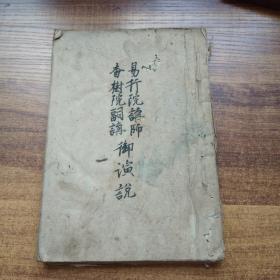 易行院講師
香樹院詞講
御演説
一